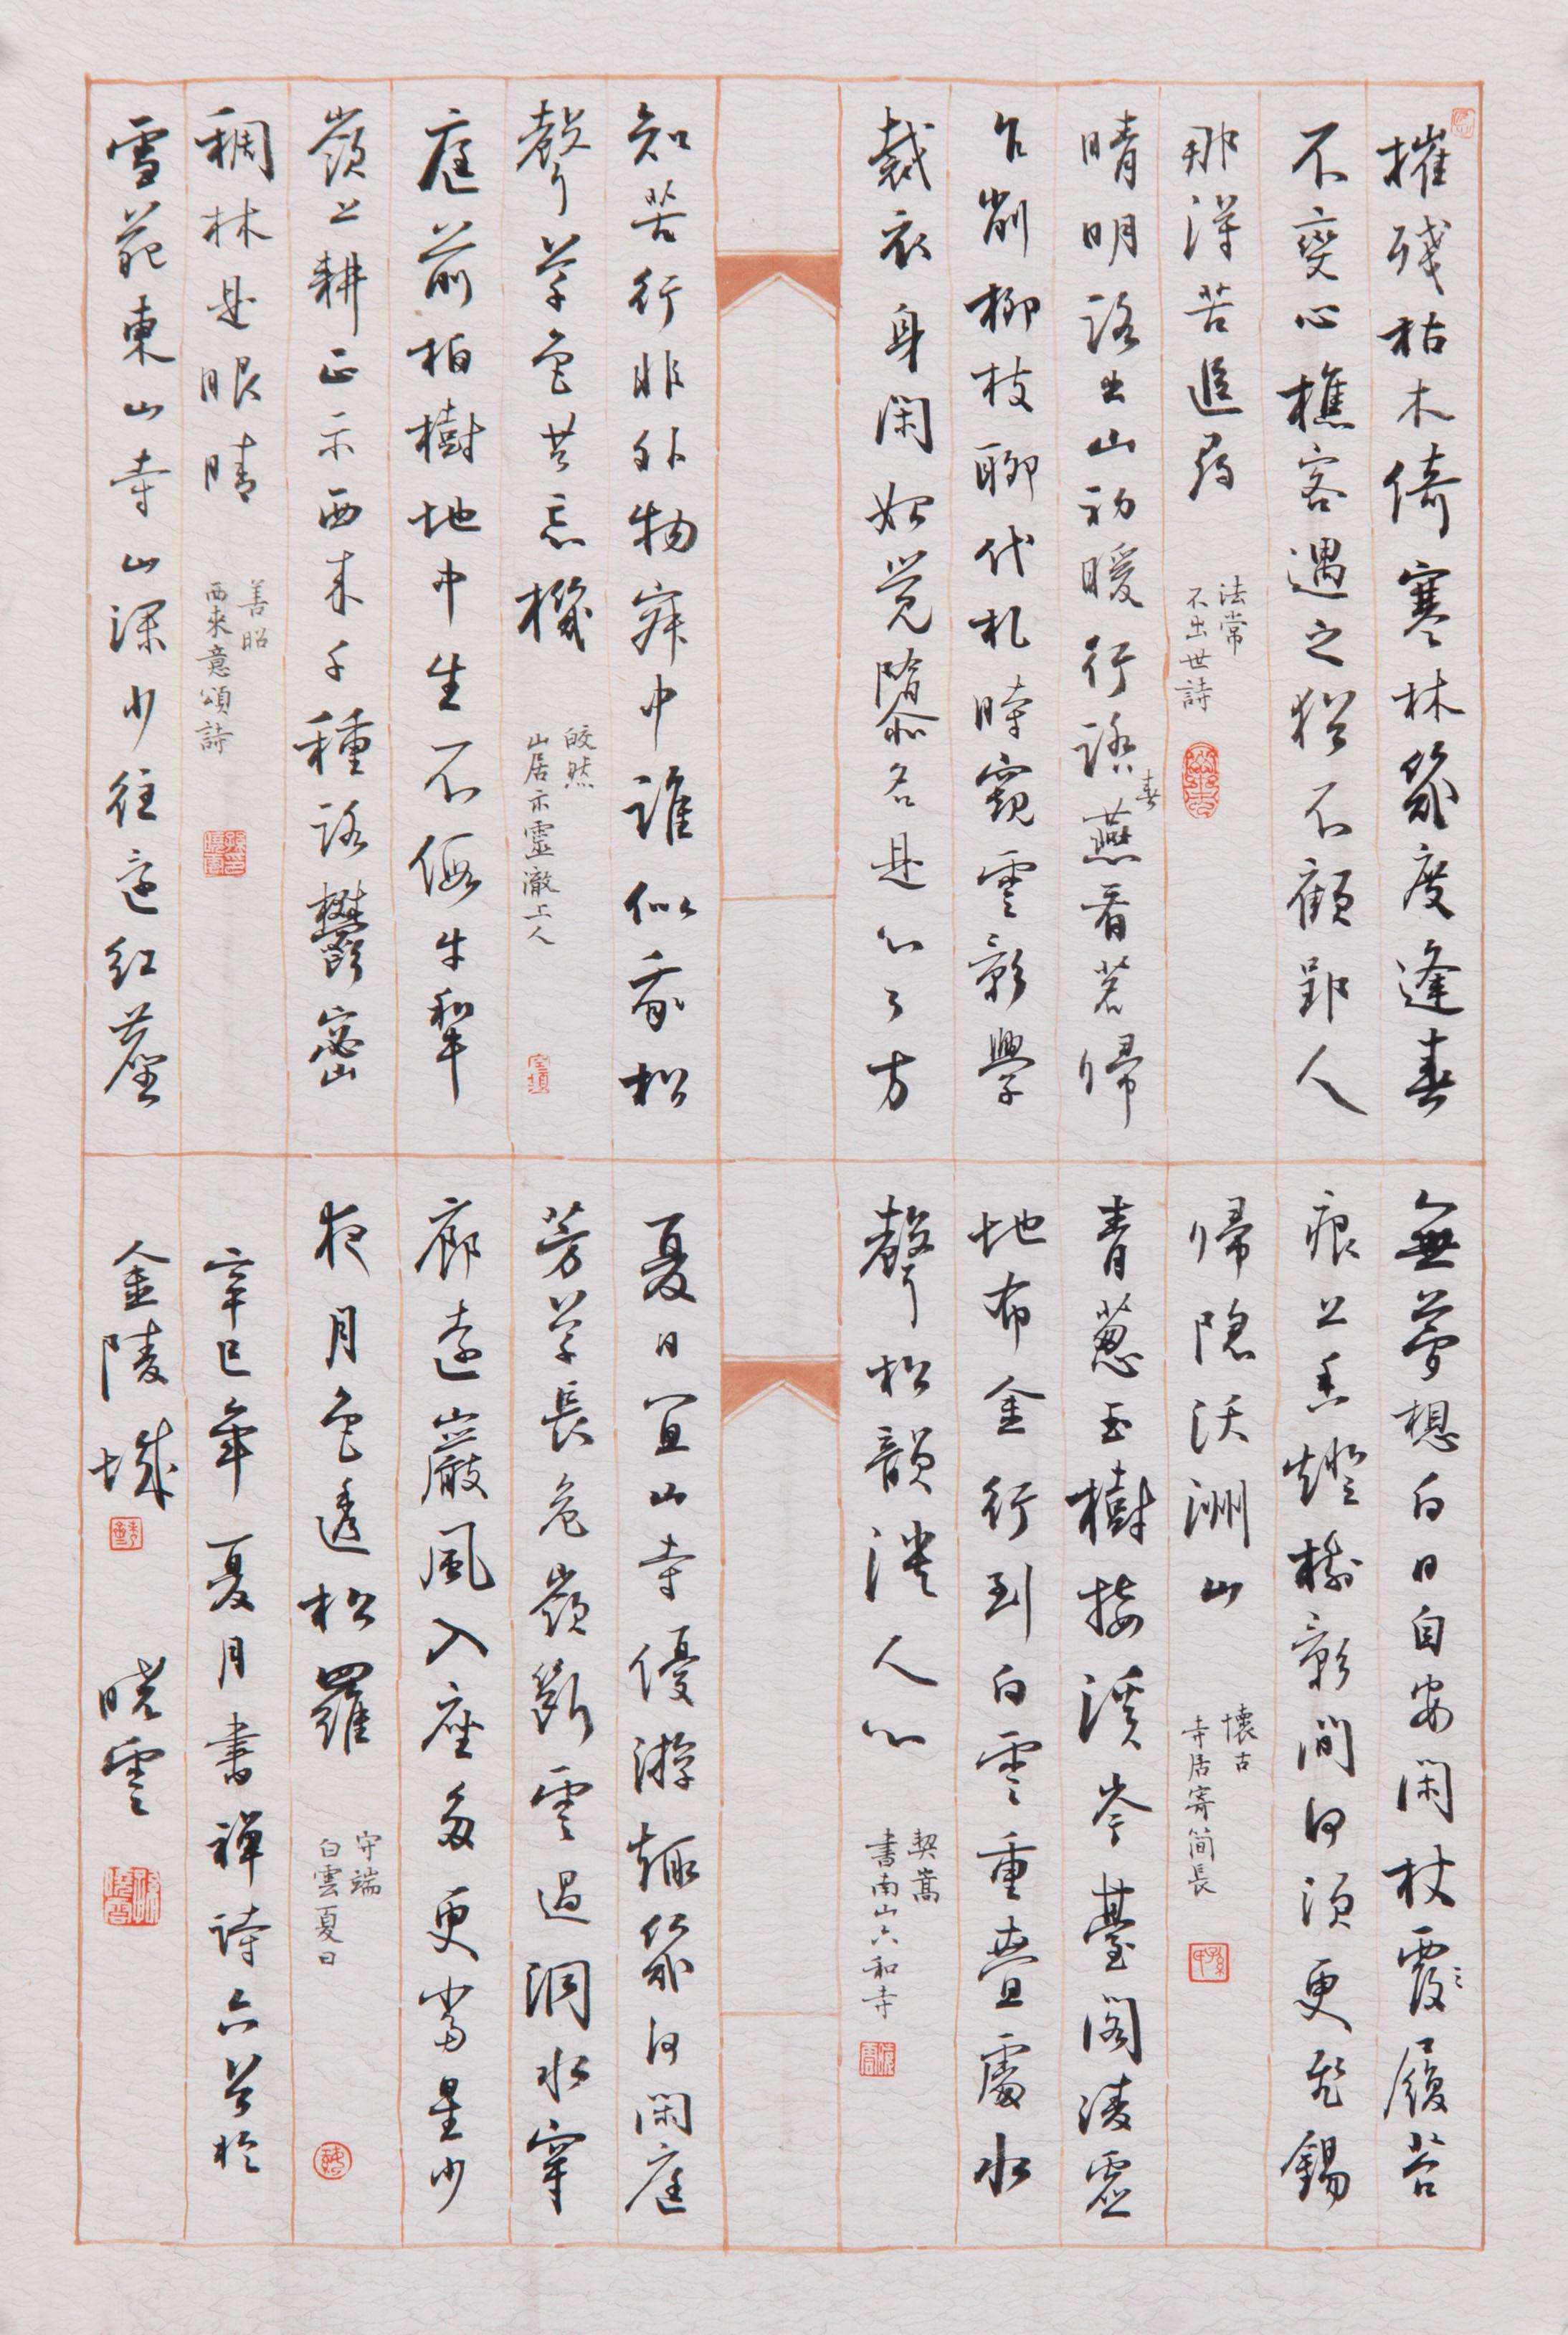 摧殘枯木倚寒林幾度逢春
不變心樵客遇之猶不顧郢人
那得苦追尋
法常
不出世詩
晴明路出山初暖行踏春蕪看茗歸
乍削柳枝聊代札時窺雲影學
裁衣身閑始覺隳名是心了方
知苦行非外物寂中誰似我松
聲草色共忘機
皎然
山居示靈澈上人
庭前柏樹地中生不假牛犁
嶺上耕正示西來千種路鬱密
稠林是眼睛
善昭
西來意頌詩
雪苑東山寺山深少往還紅塵
無夢想白日自安閑杖霞履苔
痕上香燈樹影間何須更飛錫
歸隱沃洲山
懷古
寺居寄簡長
青葱玉樹接溪岑臺閣淩虛
地布金行到白雲重疊處水
聲松韻淡人心
契嵩
書南山六和寺
夏日宜山寺優游趣幾何閑庭
芳草長危嶺斷雲過洞水穿
廊遠巖風入座多更當星少
夜月色透松羅
守端
白雲夏日
辛巳年夏月書禪詩六首於
金陵城 曉雲